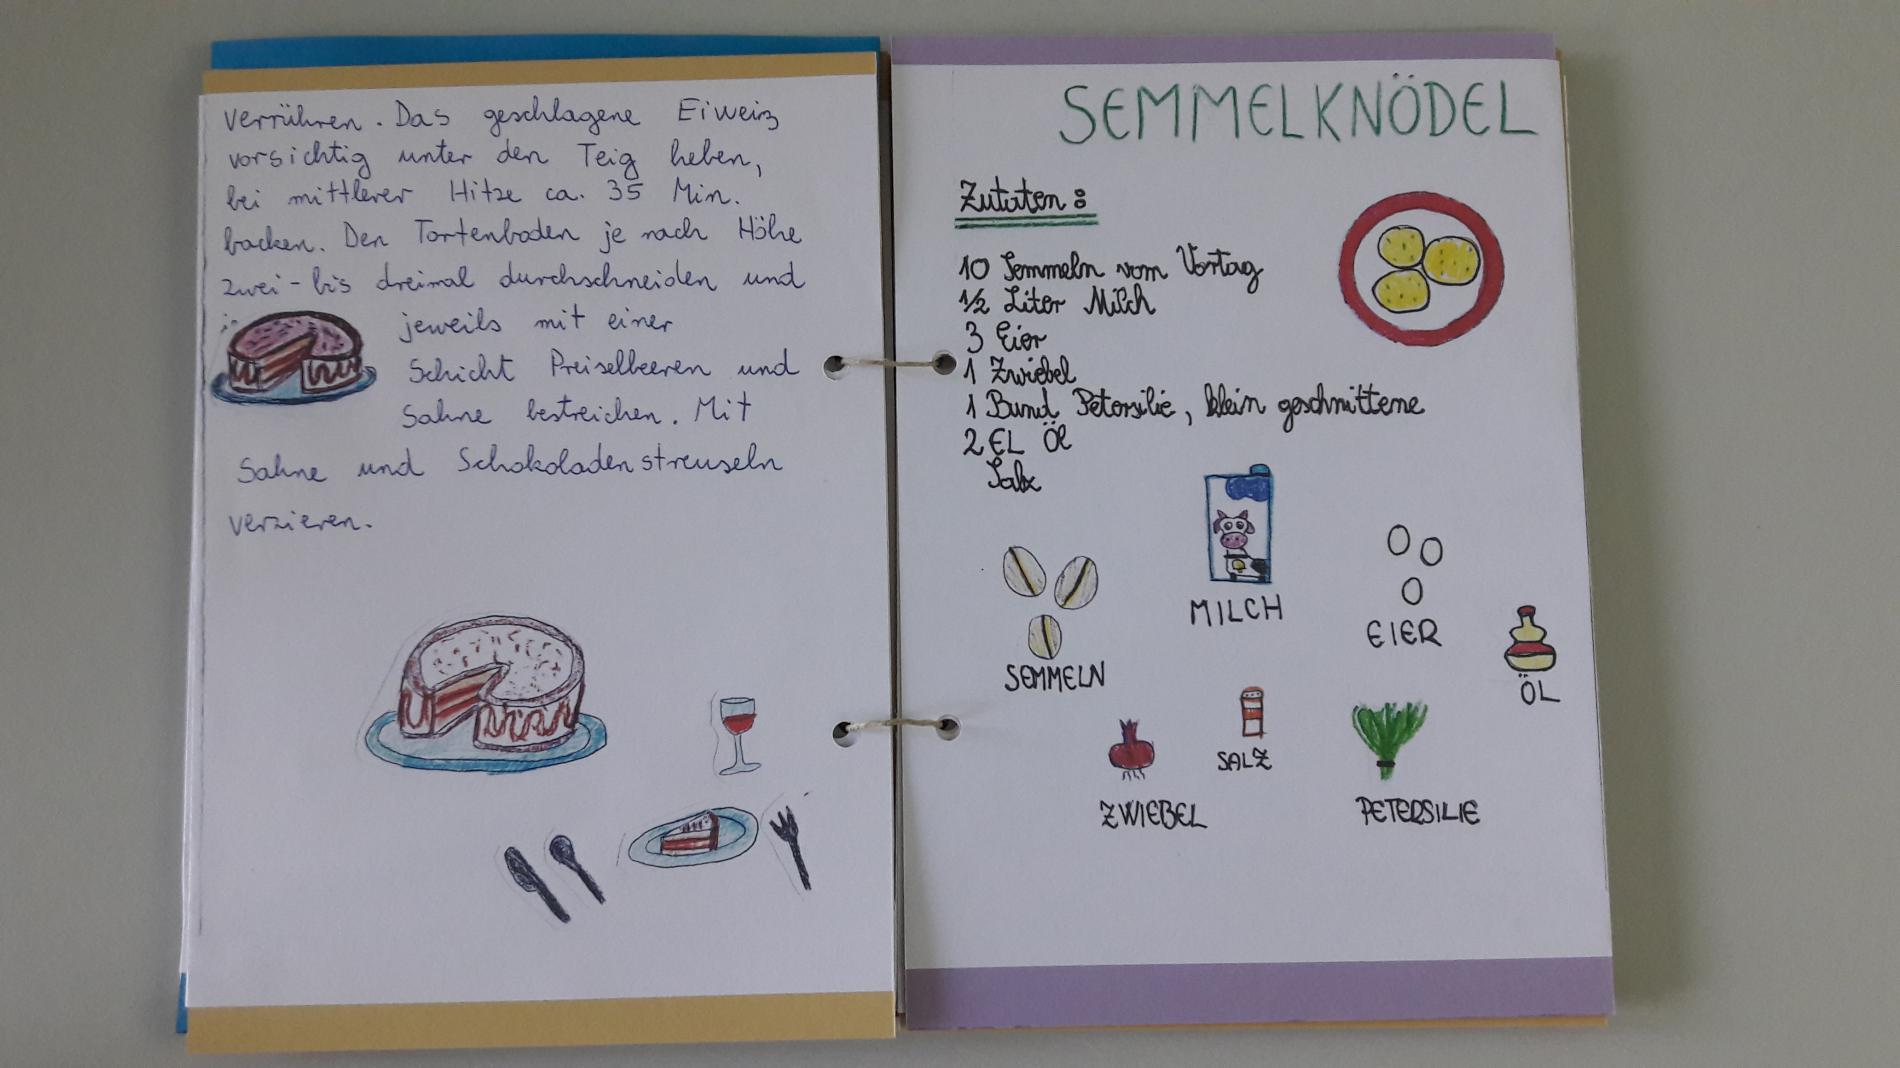 verrühren. Das geschlagene Eiweiß
vorsichtig unter den Teig heben,
bei mittlerer Hitze ca. 35 Min.
backen. Den Tortenboden je nach Höhe
zwei- bis dreimal durchschneiden und
jeweils mit einer
Schicht Preiselbeeren und
Sahne bestreichen. Mit
Sahne und Schokoladenstreuseln
verzieren.
SEMMELKNÖDEL
Zutaten:
10 Semmeln vom Vortag
1/2 Liter Milch
3 Eier
1 Zwiebel
1 Bund Petersilie, klein geschnittene
2 EL Öl
Salz
MILCH
EIER
SEMMELN
ÖL
SALZ
ZWIEBEL
PETERSILIE